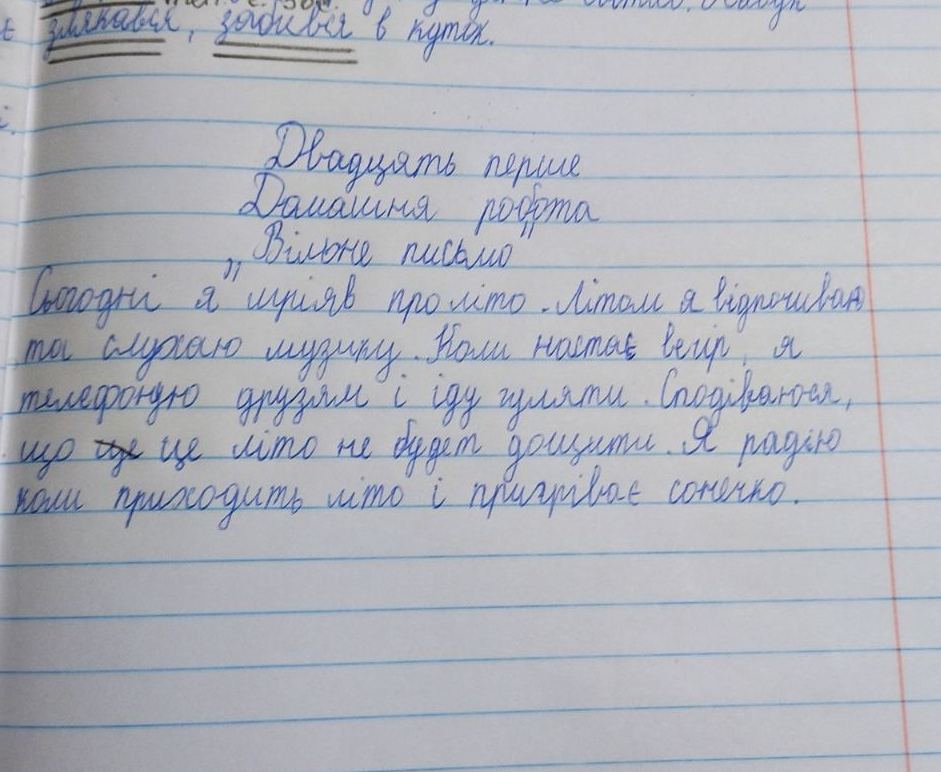 злякався, забився в куток.
Двадцять перше
Домашня робота
„Вільне письмо”
Сьогодні я мріяв про літо. Літом я відпочиваю
та слухаю музику. Коли настає вечір, я
телефоную друзям і іду гуляти. Сподіваюся,
що це літо не будет дощити. Я радію
коли приходить літо і пригріває сонечко.